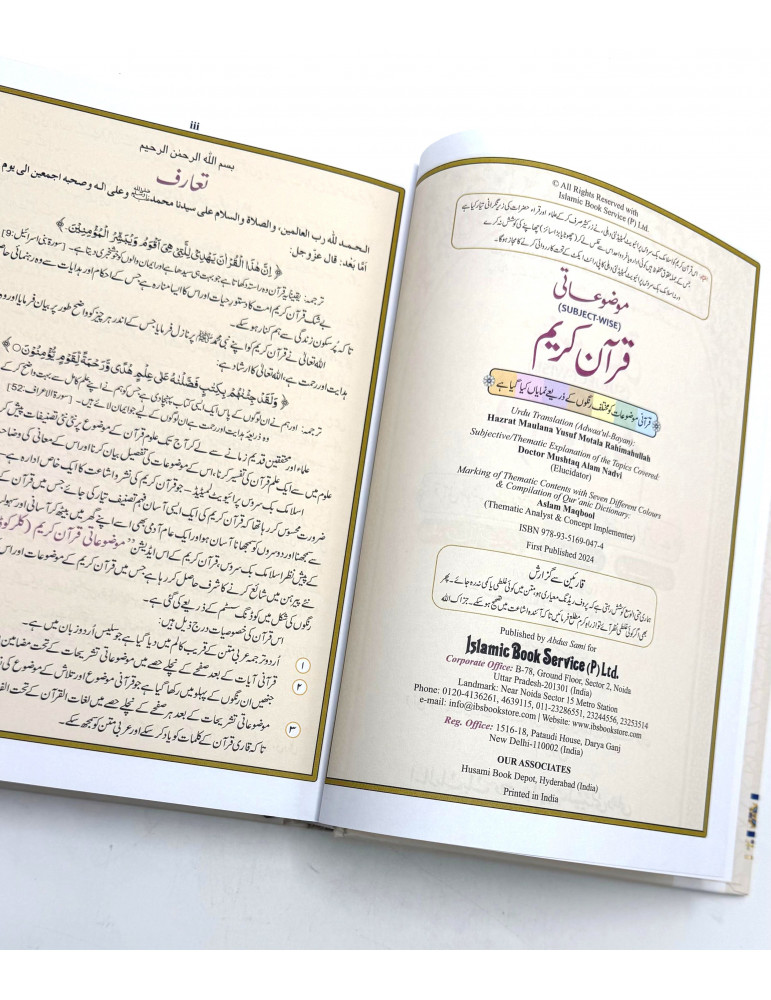 iii
بسم اللہ الرحمٰن الرحیم
تعارف
الحمد لله رب العالمین، والصلاة والسلام علی سیدنا محمد ﷺ وعلی الہ وصحبہ اجمعین الی یوم
أمَّا بَعْد: قال عزوجل:
﴿ إِنَّ هٰذَا الْقُرْاٰنَ يَهْدِيْ لِلَّتِيْ هِيَ أَقْوَمُ وَيُبَشِّرُ الْمُؤْمِنِيْنَ ﴾ [سورۃ بنی اسرائیل:9]
ترجمہ: یقیناً یہ قرآن وہ راستہ دکھاتا ہے جو بہت ہی سیدھا ہے اور ایمان والوں کو خوشخبری دیتا ہے۔
بے شک قرآن کریم امت کا دستور حیات اور اس کا ایسا منارہ ہے جس کے احکام اور ہدایات سے وہ رہنمائی حاصل
تاکہ پُرسکون زندگی سے ہم کنار ہو سکے۔
اللہ تعالیٰ نے قرآن کریم کو اپنے نبی محمد ﷺ پر نازل فرمایا جس کے اندر ہر چیز کو واضح طور پر بیان فرمایا اور وہ
ہدایت اور رحمت ہے، اللہ تعالیٰ کا ارشاد ہے:
﴿ وَلَقَدْ جِئْنٰهُمْ بِكِتٰبٍ فَصَّلْنٰهُ عَلٰى عِلْمٍ هُدًى وَّرَحْمَةً لِّقَوْمٍ يُّؤْمِنُوْنَ ﴾
ترجمہ: اور ہم نے ان لوگوں کے پاس ایک ایسی کتاب پہنچا دی ہے جس کو ہم نے اپنے علم کامل سے بہت واضح کر کے
وہ ذریعہ ہدایت اور رحمت ہے ان لوگوں کے لیے جو ایمان لائے ہیں۔ [سورۃ الاعراف:52]
علماء اور محققین قدیم زمانے سے لے کر آج تک علوم قرآن کے موضوع پر نئی نئی تصنیفات پیش کر
علوم میں سے ایک علم قرآن کی تفسیر کرنا، اس کے موضوعات کی تفصیل بیان کرنا اور اس کے معانی کی وضاحت
اسلامک بک سروس پرائیویٹ لمیٹیڈ۔ جو قرآن کریم کی نشر و اشاعت کا ایک خاص ادارہ ہے
ضرورت محسوس کر رہا تھا کہ قرآن کریم کی ایک ایسی آسان فہم تصنیف تیار کی جائے جس میں قرآن
سمجھنا اور دوسروں کو سمجھانا آسان ہو اور ایک عام آدمی بھی اسے اپنے گھر میں بیٹھ کر آسانی اور سہولت
کے پیش نظر اسلامک بک سروس، قرآن کریم کے اس ایڈیشن "موضوعاتی قرآن کریم (کلر کوڈ
نئے پیرہن میں شائع کرنے کا شرف حاصل کر رہا ہے جس میں قرآن کریم کے موضوعات اور اس
رنگوں کی شکل میں کوڈنگ سسٹم کے ذریعے کی گئی ہے۔
اس قرآن کی خصوصیات درج ذیل ہیں:
۱ اُردو ترجمہ عربی متن کے قریب کالم میں دیا گیا ہے جو سلیس اُردو زبان میں ہے۔
۲ قرآنی آیات کے بعد صفحے کے نچلے حصے میں موضوعاتی تشریحات کے تحت مضامین
جنھیں ان رنگوں کے پہلو میں رکھا گیا ہے جو قرآنی موضوع اور تلاش کے موضوع کی
۳ موضوعاتی تشریحات کے بعد ہر صفحے کے نچلے حصے میں لغات القرآن کے تحت الفاظ
تاکہ قاری قرآن کے کلمات کو یاد کر سکے اور عربی متن کو سمجھ سکے۔
© All Rights Reserved with
Islamic Book Service (P) Ltd.
موضوعاتی
(SUBJECT-WISE)
قرآن کریم
قرآنی موضوعات کو مختلف رنگوں کے ذریعے نمایاں کیا گیا ہے
Urdu Translation (Adwaa'ul-Bayan):
Hazrat Maulana Yusuf Motala Rahimahullah
Subjective/Thematic Explanation of the Topics Covered:
Doctor Mushtaq Alam Nadvi
(Elucidator)
Marking of Thematic Contents with Seven Different Colours
& Compilation of Qur'anic Dictionary:
Aslam Maqbool
(Thematic Analyst & Concept Implementer)
ISBN 978-93-5169-047-4
First Published 2024
قارئین سے گزارش
ہماری حتی الوسع کوشش رہتی ہے کہ پروف ریڈنگ معیاری ہو، متن میں کوئی غلطی یا کمی نہ رہ جائے۔ پھر
بھی اگر کوئی غلطی نظر آئے تو از راہ کرم مطلع فرمائیں تاکہ آئندہ اشاعت میں تصحیح ہو سکے۔ جزاک اللہ
Published by Abdus Sami for
Islamic Book Service (P) Ltd.
Corporate Office: B-78, Ground Floor, Sector 2, Noida
Uttar Pradesh-201301 (India)
Landmark: Near Noida Sector 15 Metro Station
Phone: 0120-4136261, 4639115, 011-23286551, 23244556, 23253514
e-mail: info@ibsbookstore.com | Website: www.ibsbookstore.com
Reg. Office: 1516-18, Pataudi House, Darya Ganj
New Delhi-110002 (India)
OUR ASSOCIATES
Husami Book Depot, Hyderabad (India)
Printed in India